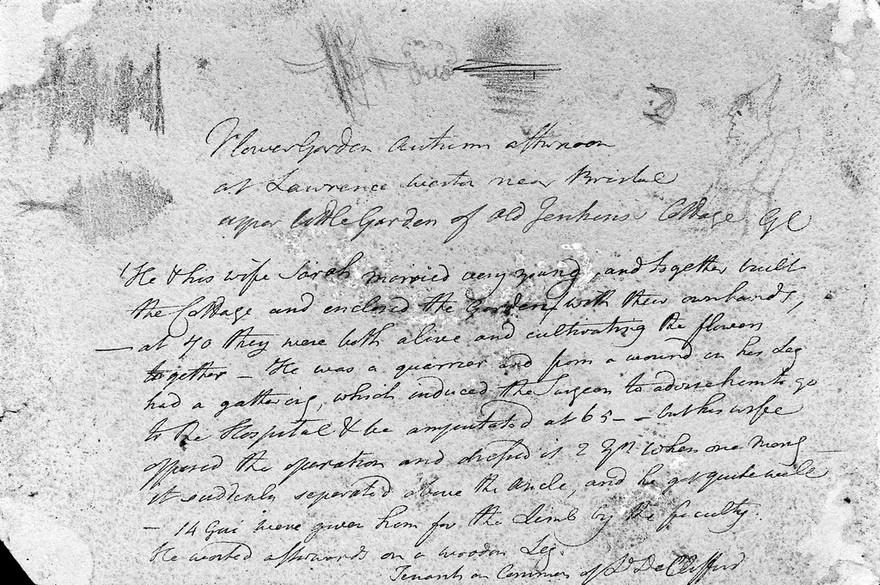 Flower Garden Autumn afternoon
at Lawrence Weston near Bristol
upper little Garden of Old Jenkins Cottage
'He & his wife Sarah married very young, and together built
the Cottage and enclosed the Garden with their own hands,
— at 70 they were both alive and cultivating the flowers
together — He was a quarrier and from a wound in his Leg
had a gathering, which induced the Surgeon to advise him to go
to the Hospital & be amputated at 65 — but his wife
opposed the operation and dressed it 2 yrs. when one morng
it suddenly seperated above the Ancle, and he got quite well
— 14 Gui were given him for the Limb by the faculty.
He worked afterwards on a wooden Leg.
Tenants on Common of Ld De Clifford